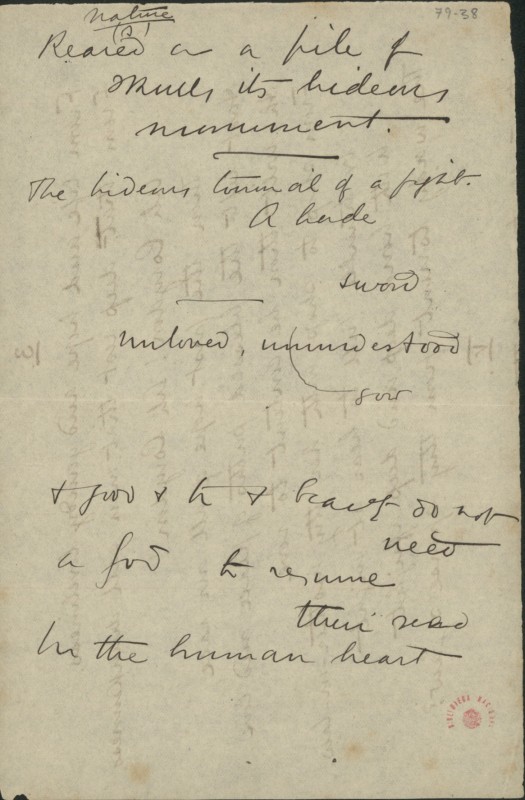 79-38
nature
(?)
Reared on a pile of
skulls its hideous
monument.
The hideous turmoil of a fight.
A
sword
unloved, ununderstood
sow
& good & & do not
need
a god to resume
their
In the human heart